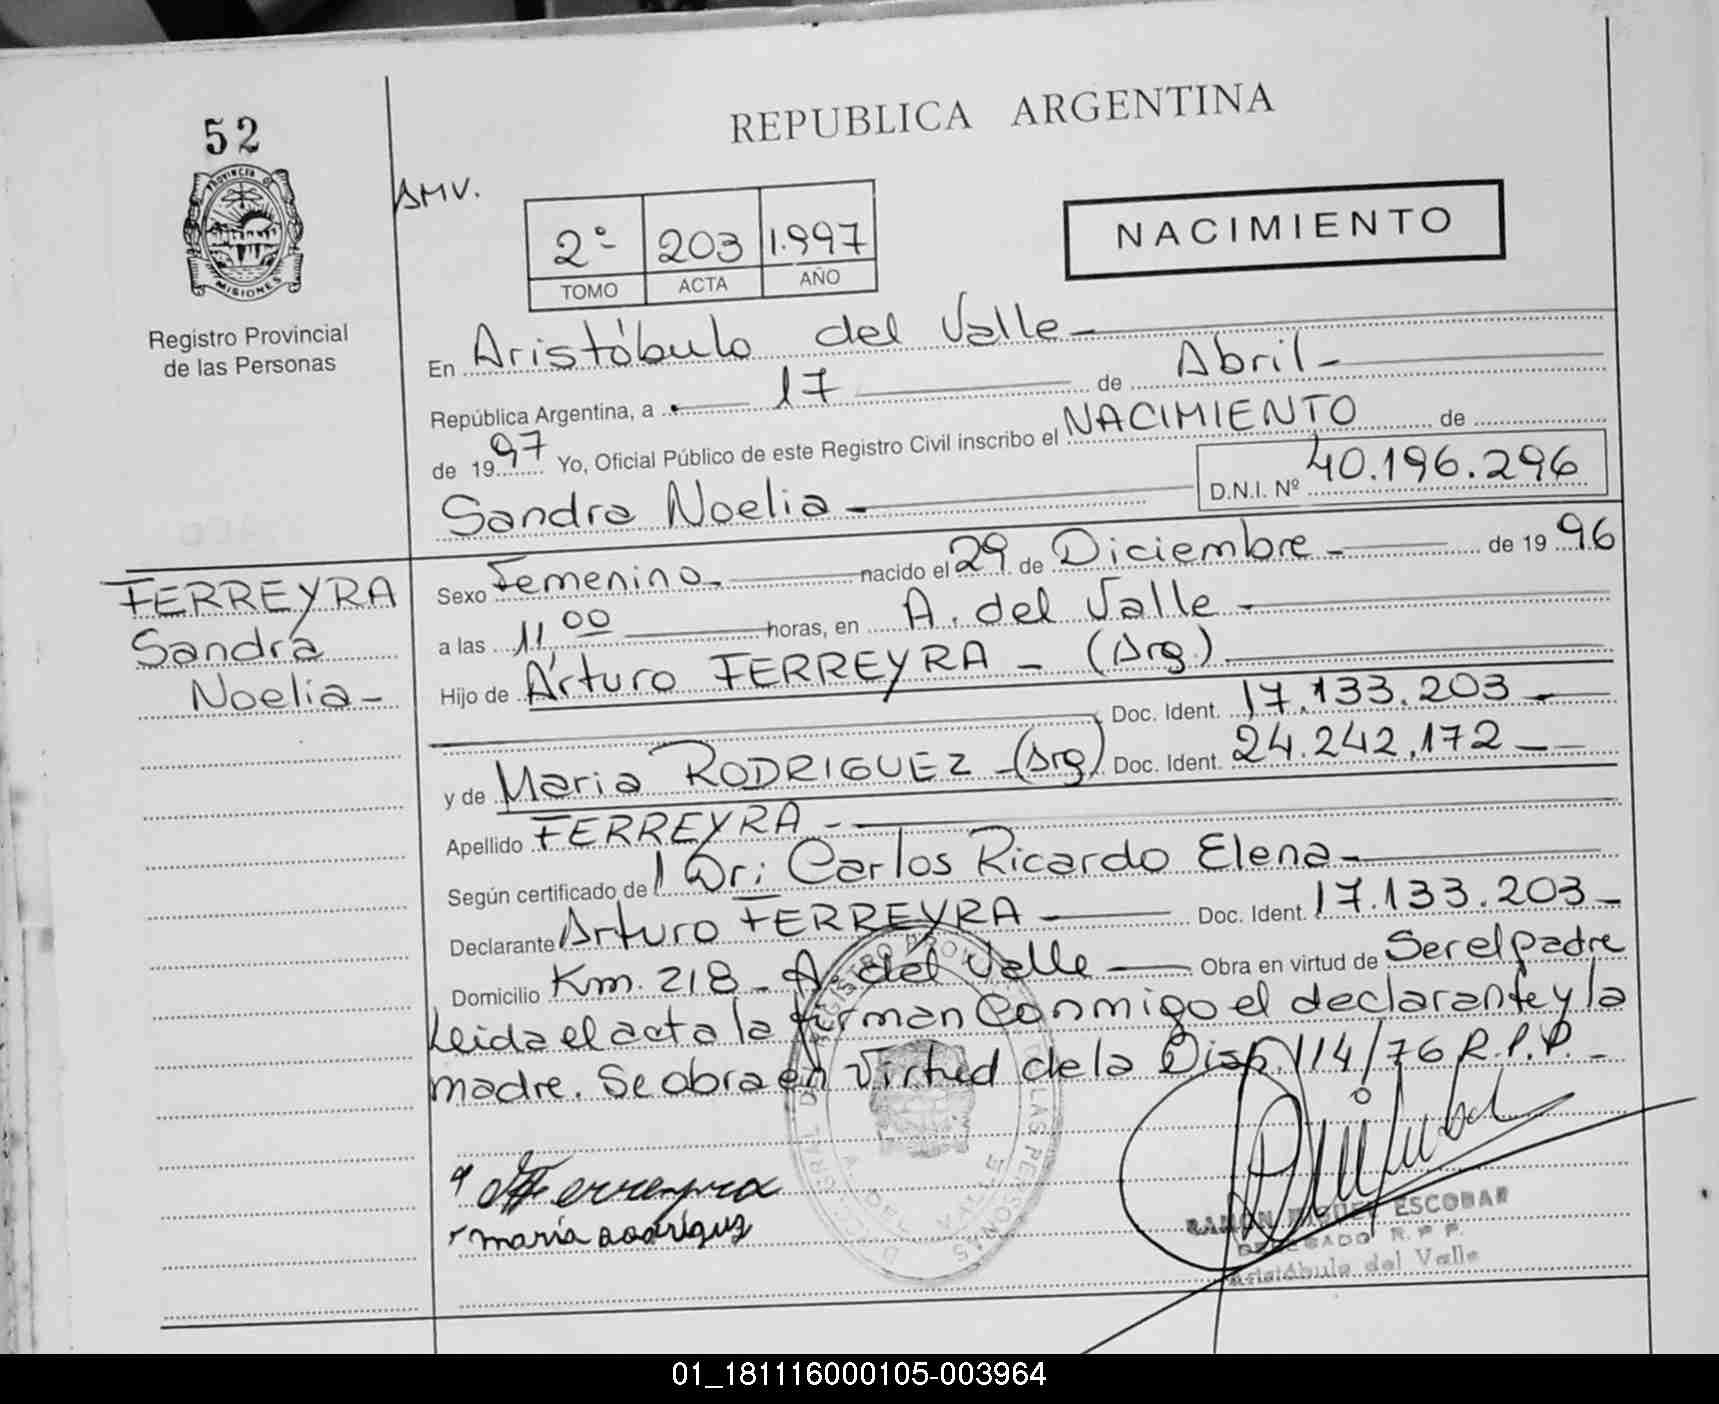 52
PROVINCIA DE
MISIONES
Registro Provincial
de las Personas
AMV.
REPUBLICA ARGENTINA
2º 203 1.997
TOMO ACTA AÑO
NACIMIENTO
En Aristóbulo del Valle
República Argentina, a 17 de Abril
de 1997 Yo, Oficial Público de este Registro Civil inscribo el NACIMIENTO de
Sandra Noelia D.N.I. Nº 40.196.296
FERREYRA
Sandra
Noelia
Sexo Femenino nacido el 29 de Diciembre de 1996
a las 11 00 horas, en A. del Valle
Hijo de Arturo FERREYRA - (Arg.)
Doc. Ident. 17.133.203
y de Maria RODRIGUEZ - (Arg) Doc. Ident. 24.242.172
Apellido FERREYRA
Según certificado de Dr: Carlos Ricardo Elena
Declarante Arturo FERREYRA Doc. Ident. 17.133.203
Domicilio Km. 218 - A. del Valle Obra en virtud de Ser el padre
Leida el acta la firman conmigo el declarante y la
madre. Se obra en virtud de la Disp. 114/76 R.P.P.
Ferreyra
maria rodriguz
RAMON MIGUEL ESCOBAR
DELEGADO R. P. P.
Aristóbulo del Valle
01_181116000105-003964